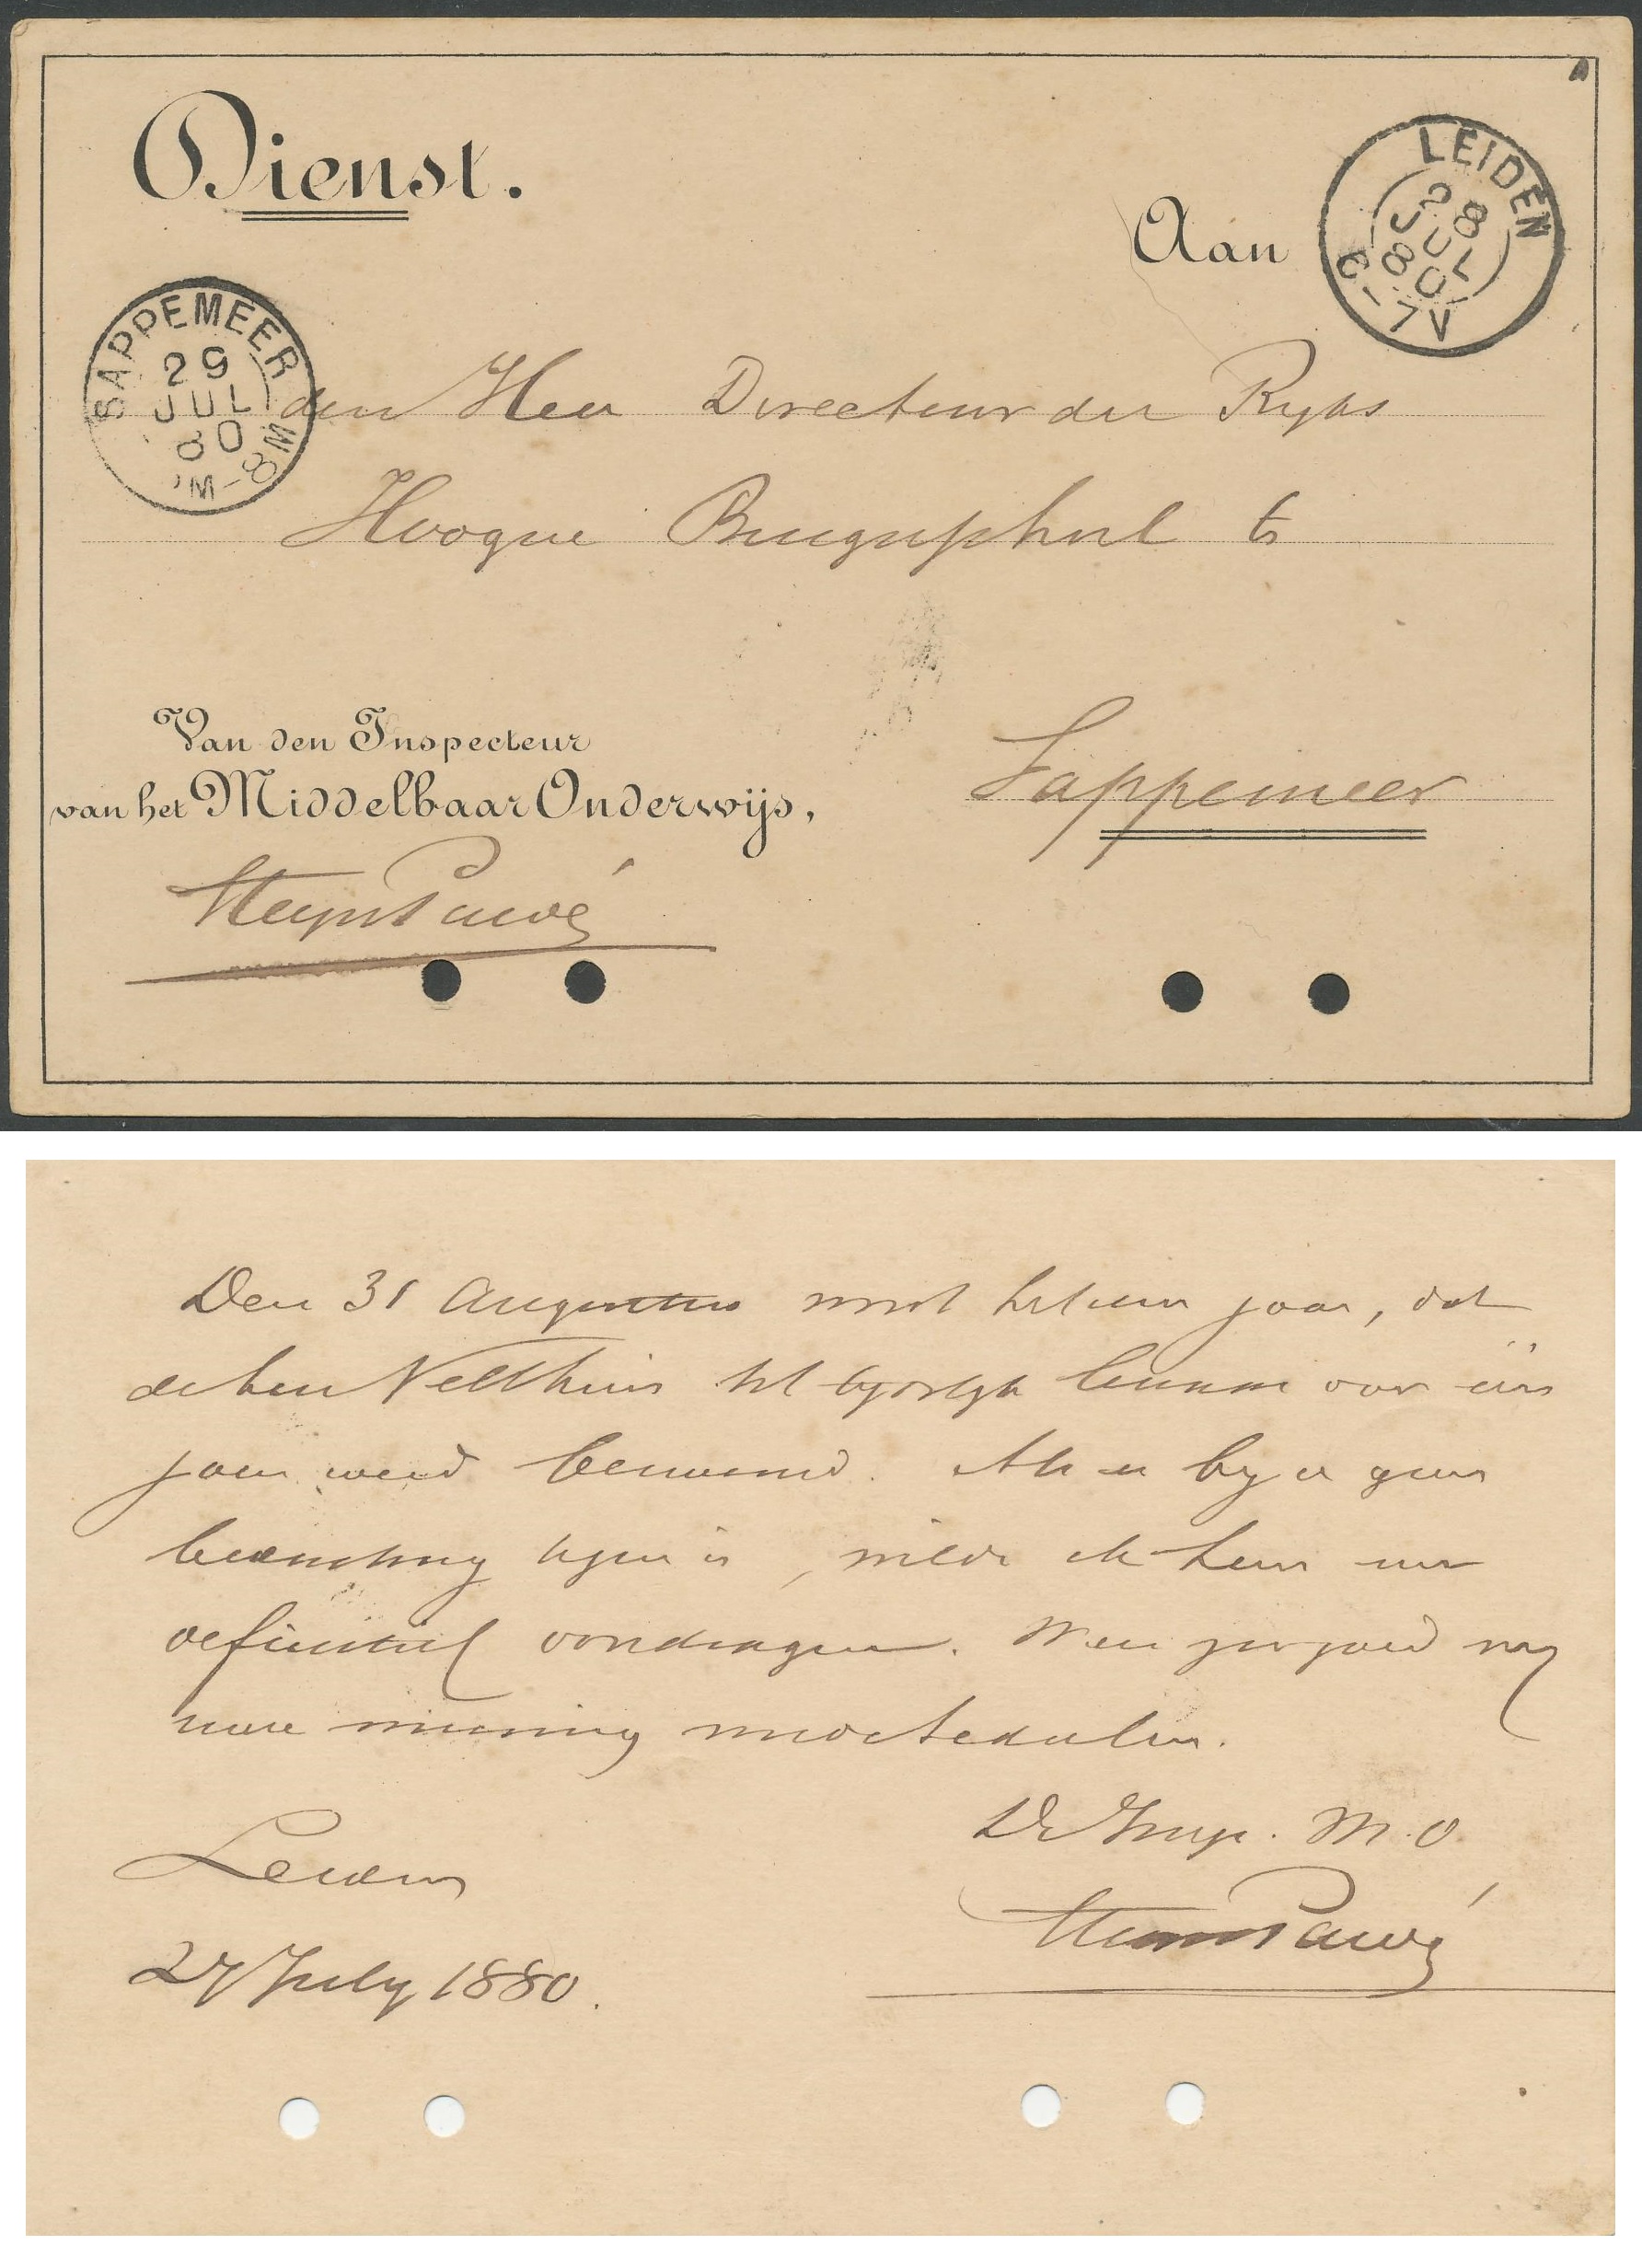 Dienst.
Aan
LEIDEN
28
JUL
80
6-7V
SAPPEMEER
29
JUL
80
8M
den Heer Directeur der Ryks
Hoogere Burgerschool te
Sappemeer
Van den Inspecteur
van het Middelbaar Onderwijs,
Steyn Parvé
Den 31 Augustus wordt het een jaar, dat
de heer Velthuis tot tydelyk leeraar voor één
jaar werd benoemd. Als er by u geen
bedenking tegen is, wilde ik hem nu
definitief voordragen. Wees zoo goed my
uwe meening mede te deelen.
De Insp. M.O.
Steyn Parvé
Leiden
27 July 1880.